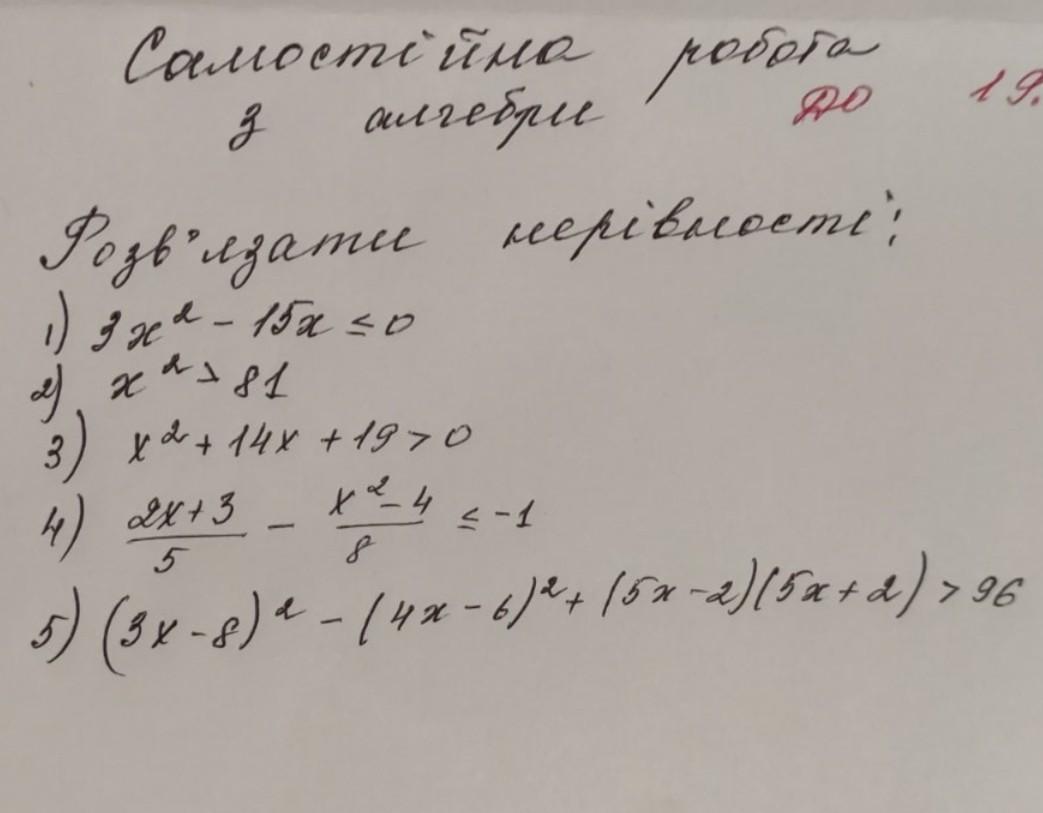 Самостійна робота
з алгебри до 19.
Розв'язати нерівності:
1) 3x² - 15x ≤ 0
2) x² > 81
3) x² + 14x + 19 > 0
4) (2x+3)/5 - (x²-4)/8 ≤ -1
5) (3x-8)² - (4x-6)² + (5x-2)(5x+2) > 96